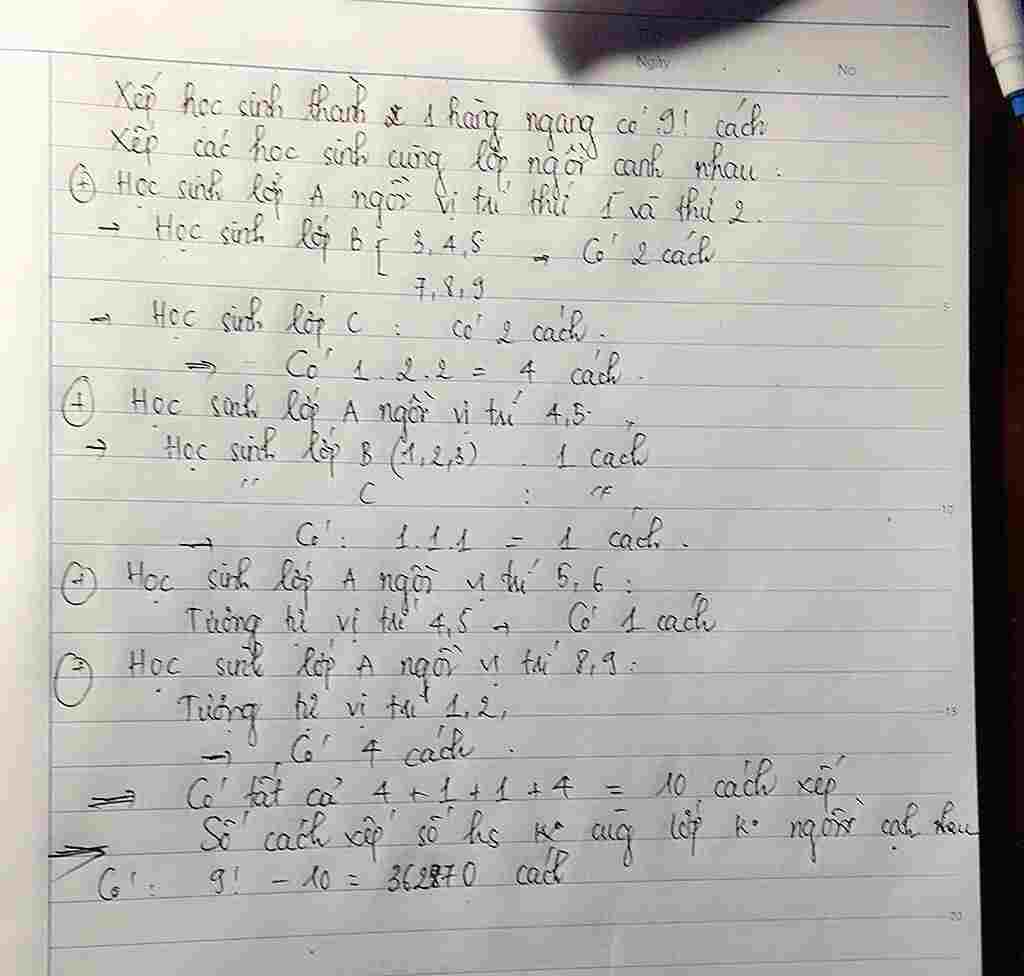 Ngày No
Xếp học sinh thành 1 hàng ngang có 9! cách
Xếp các học sinh cùng lớp ngồi cạnh nhau.
+ Học sinh lớp A ngồi vị trí thứ 1 và thứ 2.
→ Học sinh lớp B [ 3, 4, 5 → Có 2 cách
7, 8, 9
5
→ Học sinh lớp C : có 2 cách.
⇒ Có 1.2.2 = 4 cách.
+ Học sinh lớp A ngồi vị trí 4,5.
→ Học sinh lớp B (1,2,3) . 1 cách
" C : "
10
→ Có: 1.1.1 = 1 cách.
+ Học sinh lớp A ngồi vị trí 5, 6 :
Tương tự vị trí 4,5 → Có 1 cách
+ Học sinh lớp A ngồi vị trí 8,9 :
Tương tự vị trí 1,2,
15
→ Có 4 cách.
⇒ Có tất cả 4 + 1 + 1 + 4 = 10 cách xếp
⇒ Số cách xếp số hs k° cùg lớp k° ngồi cạh nhau
Có: 9! - 10 = 362870 cách
20